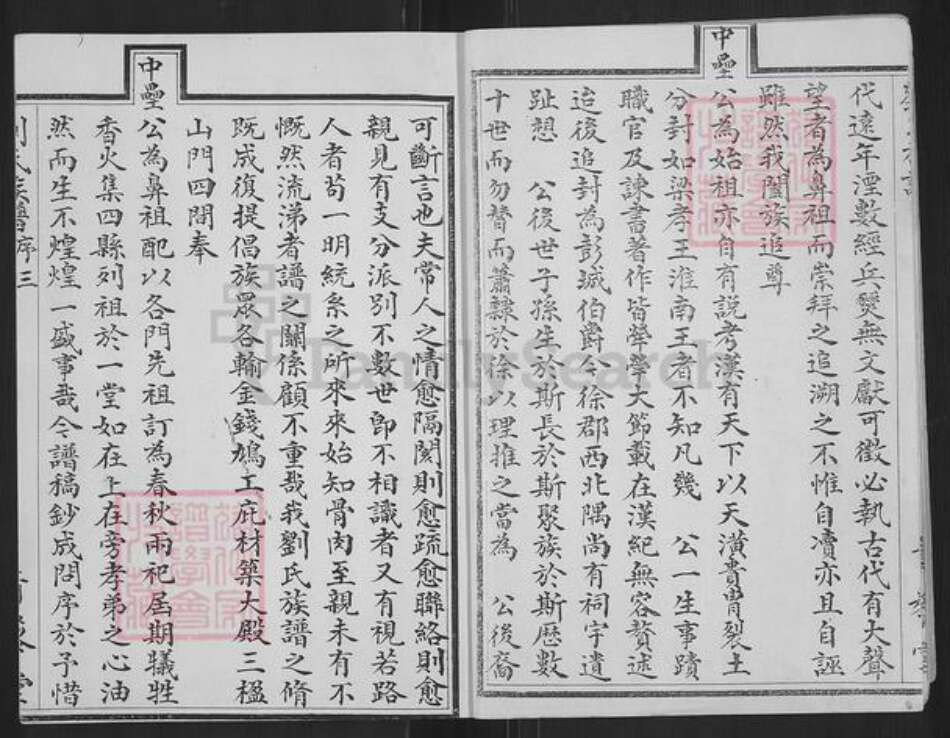 代遠年湮數經兵燹無文獻可徵必執古代有大聲
望者為鼻祖而崇拜之追溯之不惟自瀆亦且自誣
雖然我闔族追尊
中壘
公為始祖亦自有說考漢有天下以天潢貴冑裂土
分封如梁孝王淮南王者不知凡幾 公一生事蹟
職官及諫書著作皆犖犖大節載在漢紀無容贅述
迨後追封為彭城伯爵今徐郡西北隅尚有祠宇遺
趾想 公後世子孫生於斯長於斯聚族於斯歷數
十世而勿替而蕭隸於徐以理推之當為 公後裔
可斷言也夫常人之情愈隔閡則愈疏愈聯絡則愈
親見有支分派別不數世卽不相識者又有視若路
人者苟一明統系之所來來始知骨肉至親未有不
慨然流涕者譜之關係顧不重哉我劉氏族譜之脩
既成復提倡族眾各輸金錢鳩工庀材築大殿三楹
山門四間奉
中壘
公為鼻祖配以各門先祖訂為春秋兩祀屆期犧牲
香火集四縣列祖於一堂如在上在旁孝弟之心油
然而生不煌煌一盛事哉今譜稿鈔成問序於予惜
劉氏族譜序三
FamilySearch